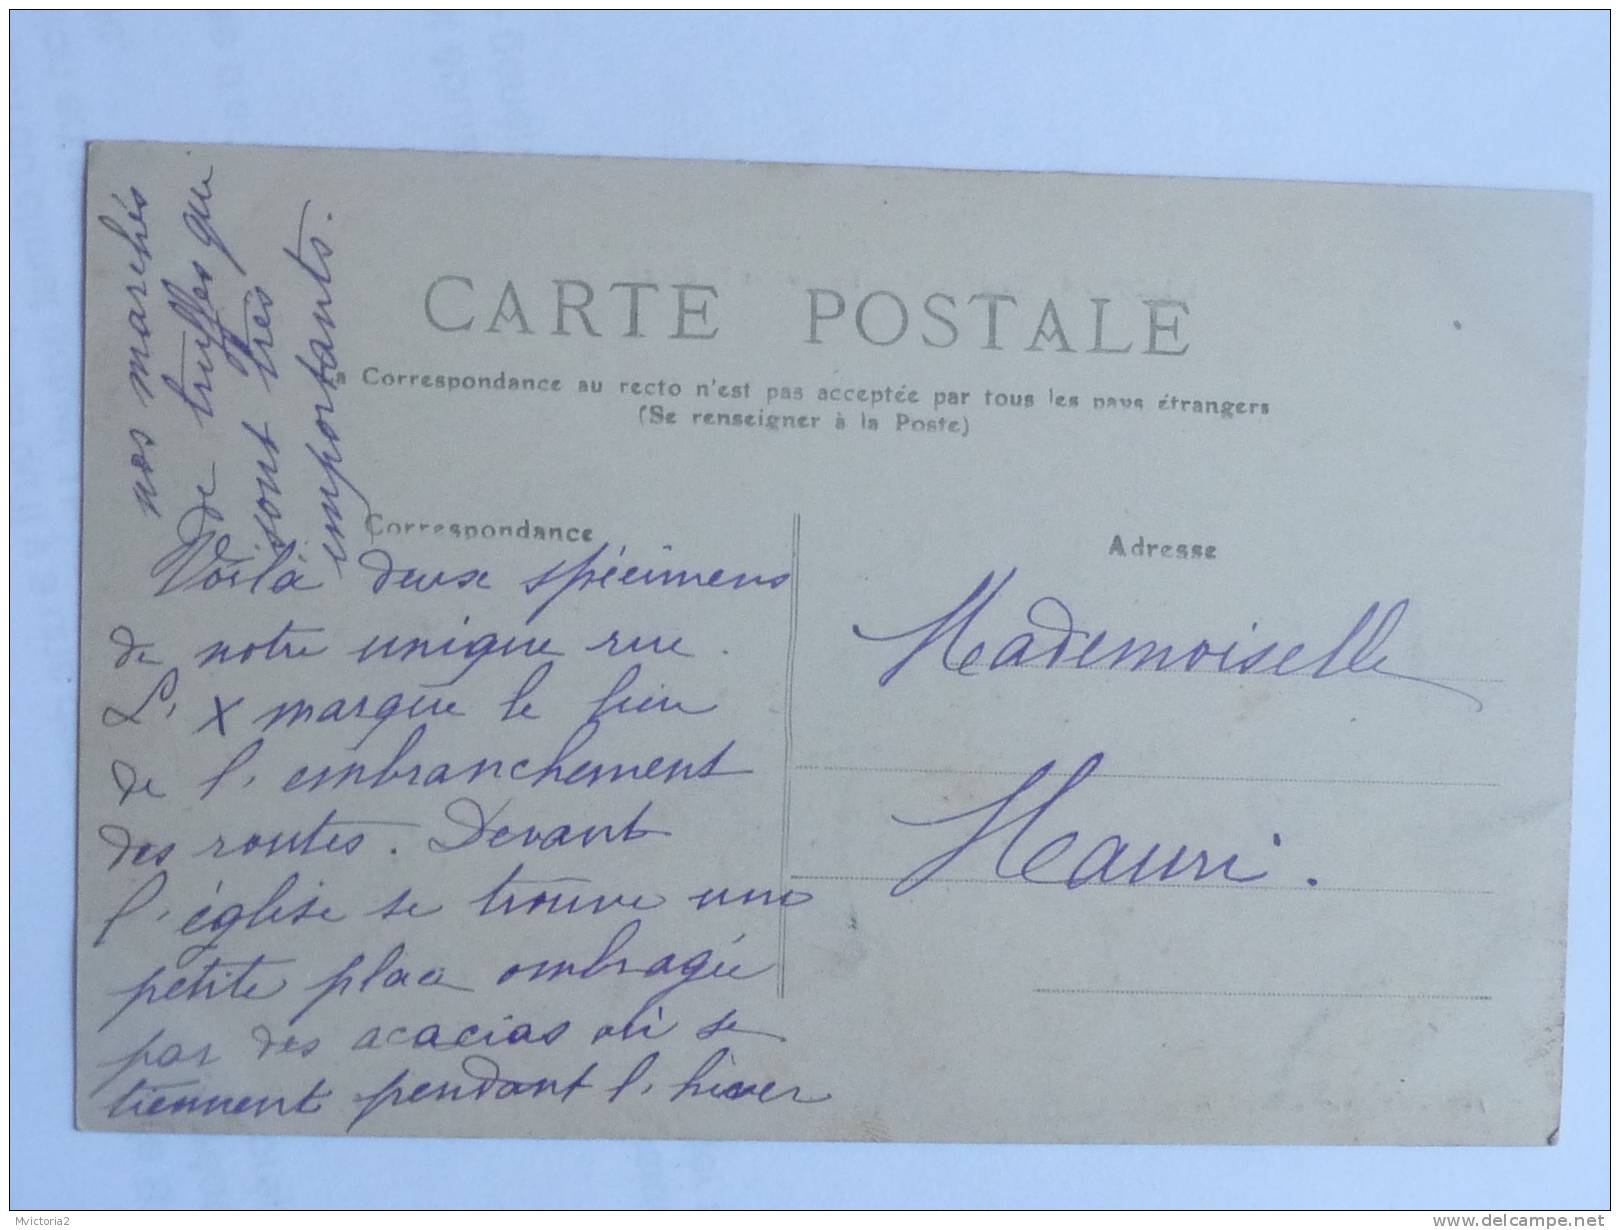 CARTE POSTALE
a Correspondance au recto n'est pas acceptée par tous les pays étrangers
(Se renseigner à la Poste)
Correspondance
Voilà deux spécimens
de notre unique rue.
L' X marque le lieu
de l'embranchement
des routes. Devant
l'église se trouve une
petite place ombragée
par des acacias où se
tiennent pendant l'hiver
nos marchés
de truffes qui
sont très
importants.
Adresse
Mademoiselle
Mauri.
Mvictoria2
www.delcampe.net